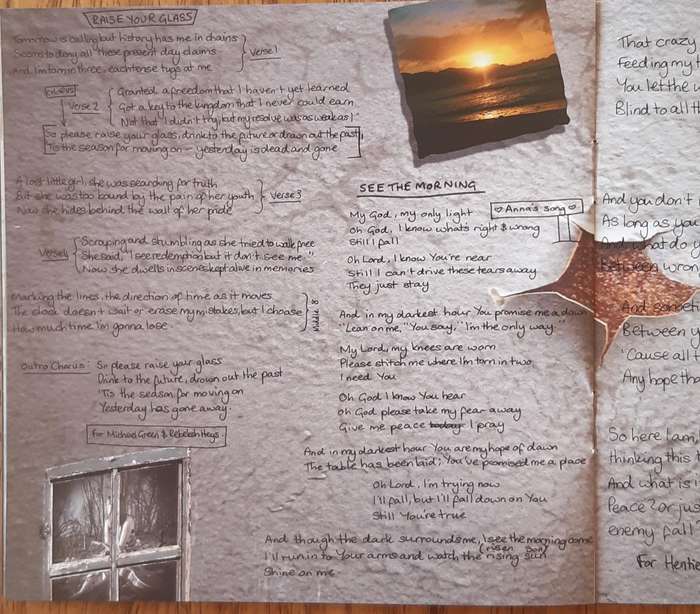 RAISE YOUR GLASS
Tomorrow is calling but history has me in chains
Seems to deny all these present day claims
And I'm torn in three, each tense tugs at me
Verse 1
Chorus
Verse 2
Granted a freedom that I haven't yet learned
Got a key to the kingdom that I never could earn
Not that I didn't try, but my resolve was as weak as I
So please raise your glass, drink to the future or drown out the past,
'Tis the season for moving on - yesterday is dead and gone
A lost little girl, she was searching for truth
But she was too bound by the pain of her youth
Now she hides behind the wall of her pride
Verse 3
Verse 4
Scraping and stumbling as she tried to walk free
She said, "I see redemption but it don't see me"
Now she dwells in scenes kept alive in memories
Marking the lines, the direction of time as it moves
The clock doesn't wait or erase my mistakes, but I choose
How much time I'm gonna lose
Middle 8
Outro Chorus: So please raise your glass
Drink to the future, drown out the past
'Tis the season for moving on
Yesterday has gone away.
For Michael Green & Rebekah Hays
SEE THE MORNING
♡ Anna's Song ♡
My God, my only light
Oh God, I know what's right & wrong
Still I fall
Oh Lord, I know You're near
Still I can't drive these tears away
They just stay
And in my darkest hour You promise me a dawn
"Lean on me," You say, "I'm the only way."
My Lord, my knees are worn
Please stitch me where I'm torn in two
I need You
Oh God I know You hear
Oh God please take my fear away
Give me peace today I pray
And in my darkest hour You are my hope of dawn
The table has been laid; You've promised me a place
Oh Lord, I'm trying now
I'll fall, but I'll fall down on You
Still You're true
And though the dark surrounds me, I see the morning come
(risen Son)
I'll run in to Your arms and watch the rising sun
Shine on me
That crazy
feeding my
You let the
Blind to all t
And you don't
As long as you
And what do y
Between wron
And someth
Between y
'Cause all t
Any hope tha
So here I am
thinking this t
And what is i
Peace? or jus
enemy fall
For Hentie